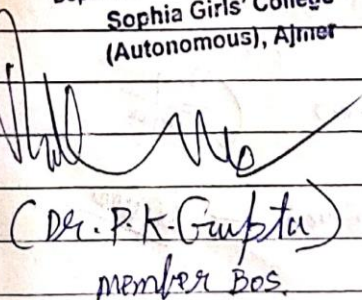 Sophia Girls' College
(Autonomous), Ajmer
(Dr. P. K. Gupta)
Member BOS.